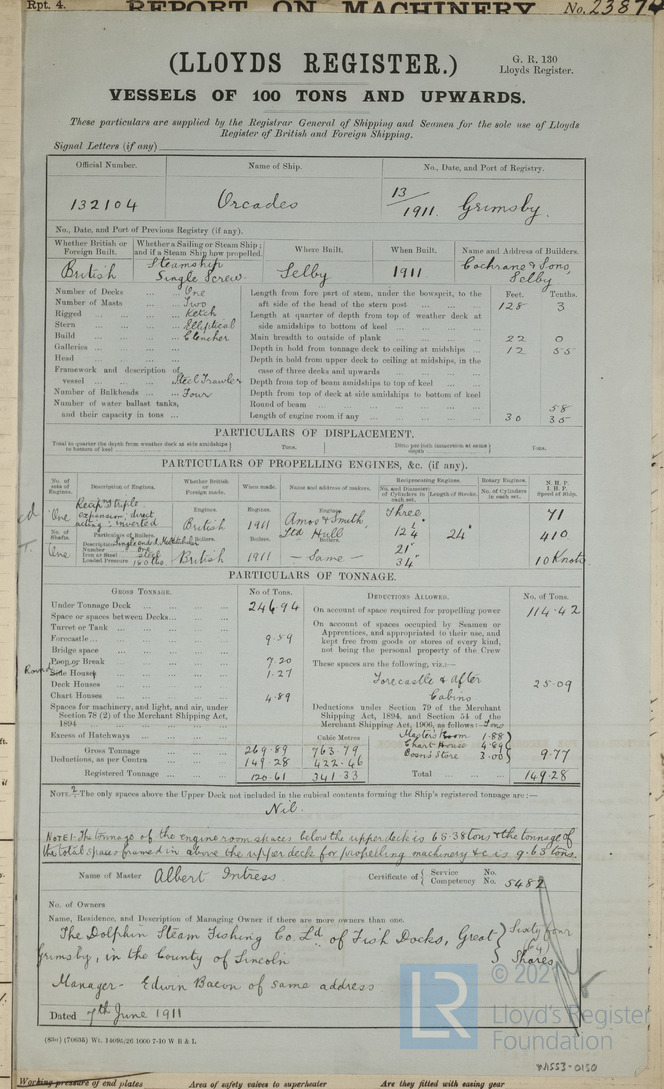 Rpt. 4. REPORT ON MACHINERY No. 2387
(LLOYDS REGISTER.)
G. R. 130
Lloyds Register.
VESSELS OF 100 TONS AND UPWARDS.
These particulars are supplied by the Registrar General of Shipping and Seamen for the sole use of Lloyds
Register of British and Foreign Shipping.
Signal Letters (if any)
Official Number. Name of Ship. No., Date, and Port of Registry.
132104 Orcades 13/1911. Grimsby.
No., Date, and Port of Previous Registry (if any).
Whether British or Foreign Built. Whether a Sailing or Steam Ship; and if a Steam Ship how propelled. Where Built. When Built. Name and Address of Builders.
British Steamship Single Screw. Selby 1911. Cochrane & Sons, Selby
Number of Decks ... ... One
Number of Masts ... ... Two
Rigged ... ... Ketch
Stern ... ... Elliptical
Build ... ... Clencher
Galleries ... ...
Head ... ...
Framework and description of vessel ... ... Steel Trawler
Number of Bulkheads ... ... Four
Number of water ballast tanks, and their capacity in tons ...
Feet. Tenths.
Length from fore part of stem, under the bowsprit, to the aft side of the head of the stern post ... 128 3
Length at quarter of depth from top of weather deck at side amidships to bottom of keel ...
Main breadth to outside of plank ... 22 0
Depth in hold from tonnage deck to ceiling at midships ... 12 55
Depth in hold from upper deck to ceiling at midships, in the case of three decks and upwards ...
Depth from top of beam amidships to top of keel ...
Depth from top of deck at side amidships to bottom of keel
Round of beam ... 58
Length of engine room if any ... 30 35
PARTICULARS OF DISPLACEMENT.
Total to quarter the depth from weather deck at side amidships to bottom of keel Tons. Ditto per inch immersion at same depth Tons.
PARTICULARS OF PROPELLING ENGINES, &c. (if any).
No. of sets of Engines. Description of Engines. Whether British or Foreign made. When made. Name and address of makers. Reciprocating Engines. Rotary Engines. N. H. P. I. H. P. Speed of Ship.
No. and Diameter of Cylinders in each set. Length of Stroke. No. of Cylinders in each set.
One expansion, direct acting, inverted Engines. British Engines. 1911 Engines. Amos & Smith, Ltd Hull Three 12¼" 21" 34" 24" 71 410 10 Knots
No. of Shafts. One
Particulars of Boilers.
Description Single ended Multitubular
Number one
Iron or Steel steel
Loaded Pressure 180 lbs.
Boilers. British Boilers. 1911 Boilers. – Same –
PARTICULARS OF TONNAGE.
GROSS TONNAGE. No of Tons.
Under Tonnage Deck ... 246.94
Space or spaces between Decks ...
Turret or Tank ...
Forecastle ... 9.59
Bridge space
Poop or Break ... 7.20
Round
Side Houses 1.27
Deck Houses ...
Chart Houses ... 4.89
Spaces for machinery, and light, and air, under Section 78 (2) of the Merchant Shipping Act, 1894
Excess of Hatchways ...
Cubic Metres
Gross Tonnage ... 269.89 763.79
Deductions, as per Contra ... 149.28 422.46
Registered Tonnage ... 120.61 341.33
DEDUCTIONS ALLOWED. No. of Tons.
On account of space required for propelling power 114.42
On account of spaces occupied by Seamen or Apprentices, and appropriated to their use, and kept free from goods or stores of every kind, not being the personal property of the Crew
These spaces are the following, viz.:—
Forecastle & After Cabins 25.09
Deductions under Section 79 of the Merchant Shipping Act, 1894, and Section 54 of the Merchant Shipping Act, 1906, as follows:— Tons
Master's Room 1.88
Chart House 4.89
Bosn's Store 3.00
9.77
Total ... 149.28
NOTE 2.—The only spaces above the Upper Deck not included in the cubical contents forming the Ship's registered tonnage are:—
Nil.
NOTE 1. The tonnage of the engine room spaces below the upper deck is 65.38 tons & the tonnage of
the total spaces framed in above the upper deck for propelling machinery &c is 9.63 tons.
Name of Master Albert Intress Certificate of { Service No. Competency No. 5482
No. of Owners
Name, Residence, and Description of Managing Owner if there are more owners than one.
The Dolphin Steam Fishing Co. Ld. of Fish Docks, Great } Sixty four
Grimsby, in the County of Lincoln 64 Shares
Manager - Edwin Bacon of same address
Dated 7th June 1911
(830) (70635) Wt. 14095/26 1000 7-10 W B & L
LR © 202
Lloyd's Register
Foundation
W1553-0150
Working pressure of end plates Area of safety valves to superheater Are they fitted with easing gear